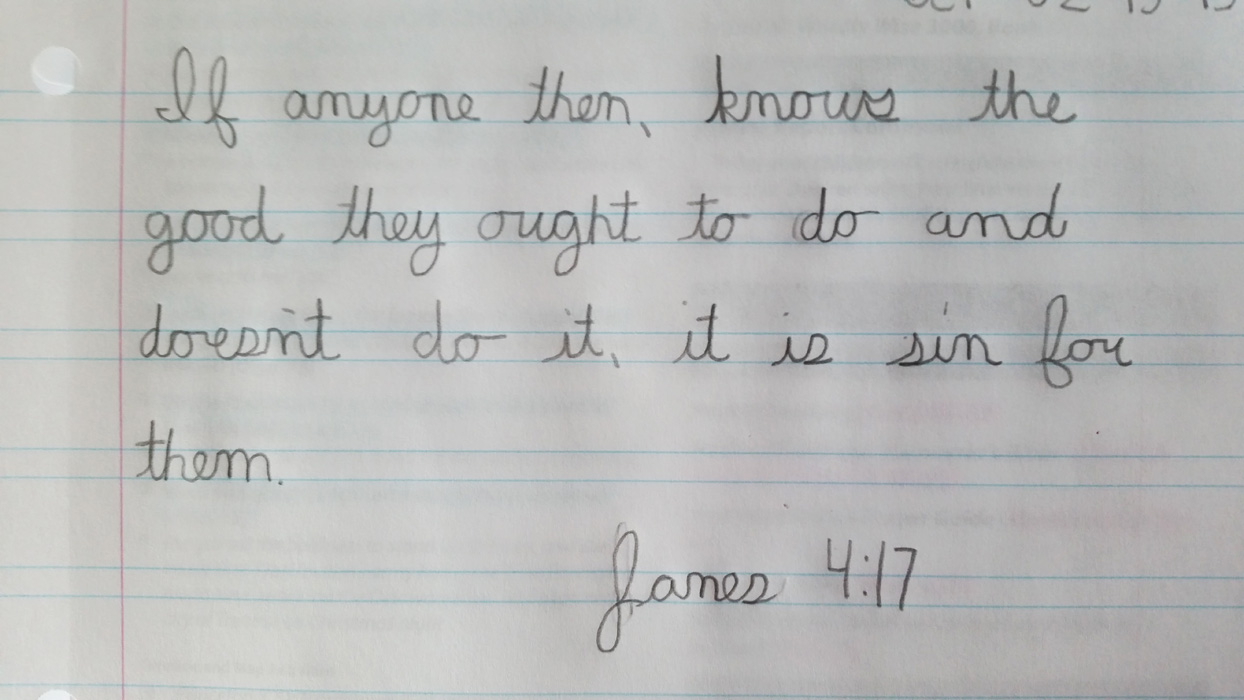 If anyone then, knows the
good they ought to do and
doesn't do it, it is sin for
them.
James 4:17